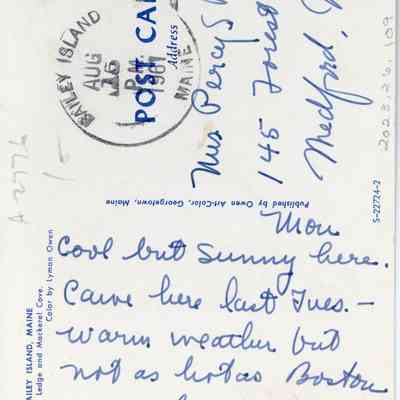 BAILEY ISLAND
AUG
PM
1967
MAINE
POST CA
Address
Mrs Percy S
145 Forest
Medford,
2023.26.109
A 2776
Published by Owen Art-Color, Georgetown, Maine
S-22724-2
AILEY ISLAND, MAINE
Ledge and Mackerel Cove.
Color by Lyman Owen
Mon
Cool but Sunny here.
Came here last Tues. —
warm weather but
not as hot as Boston